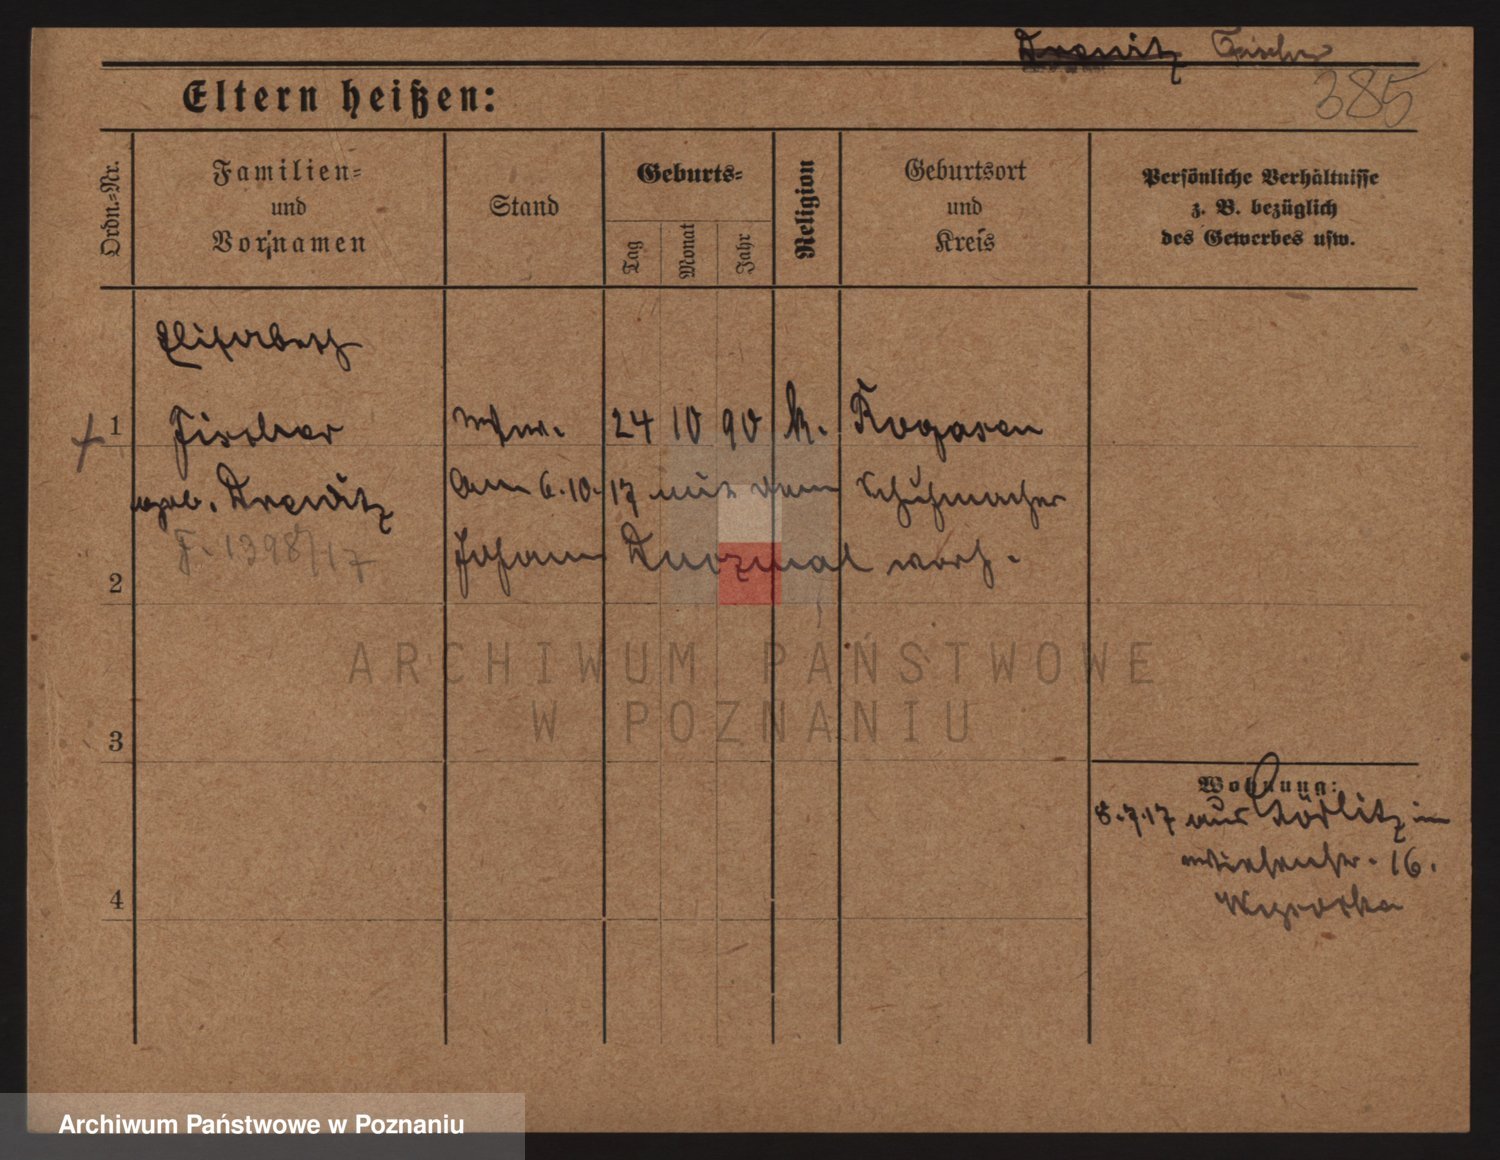 Drewitz Fischer
385
Eltern heißen:
Ordn.-Nr.
Familien-
und
Vornamen
Stand
Geburts-
Tag
Monat
Jahr
Religion
Geburtsort
und
Kreis
Persönliche Verhältnisse
z. B. bezüglich
des Gewerbes usw.
Elisabeth
1 Fischer Wwe. 24 10 90 k. Rogasen
geb. Drewitz am 6.10.17 mit dem Schuhmacher
F. 1398/17 Johann verh.
2
ARCHIWUM PAŃSTWOWE
W POZNANIU
3
4
Wohnung:
8.7.17 aus Görlitz in
16.
Archiwum Państwowe w Poznaniu